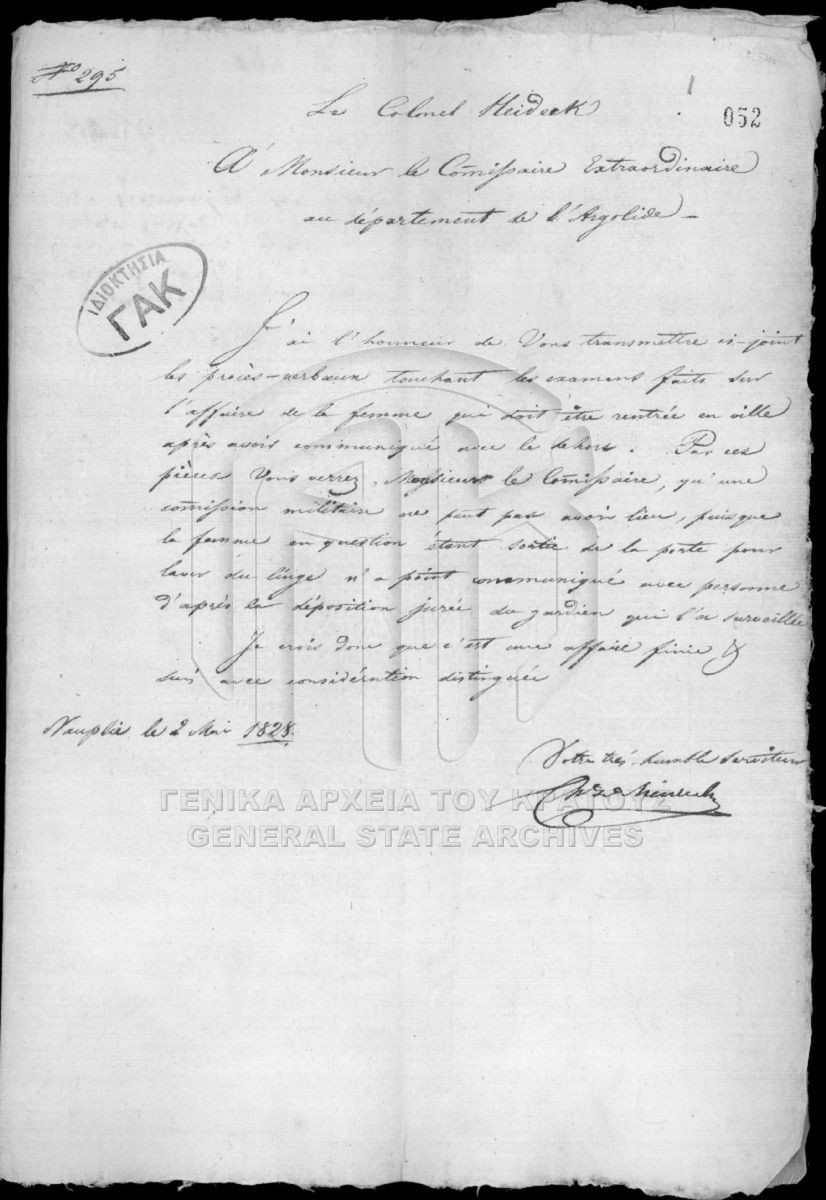 No 295
Le Colonel Heideck
052
A' Monsieur le Comissaire Extraordinaire
au département de l'Argolide –
ΙΔΙΟΚΤΗΣΙΑ
ΓΑΚ
J'ai l'honneur de Vous transmettre ci-joint
les procès-verbaux touchant les examens faits sur
l'affaire de la femme qui doit être rentrée en ville
après avoir communiqué avec le dehors. Par ces
pièces Vous verrez, Monsieur le Comissaire, qu'une
comission militaire ne peut pas avoir lieu, puisque
la femme en question étant sortie de la porte pour
laver du linge n'a point communiqué avec personne
d'après la déposition jurée du gardien qui l'a surveillée
Je crois donc que c'est une affaire finie &
suis avec considération distinguée
Nauplie le 2 Mai 1828.
Votre très humble serviteur
ΓΕΝΙΚΑ ΑΡΧΕΙΑ ΤΟΥ ΚΡΑΤΟΥΣ
GENERAL STATE ARCHIVES